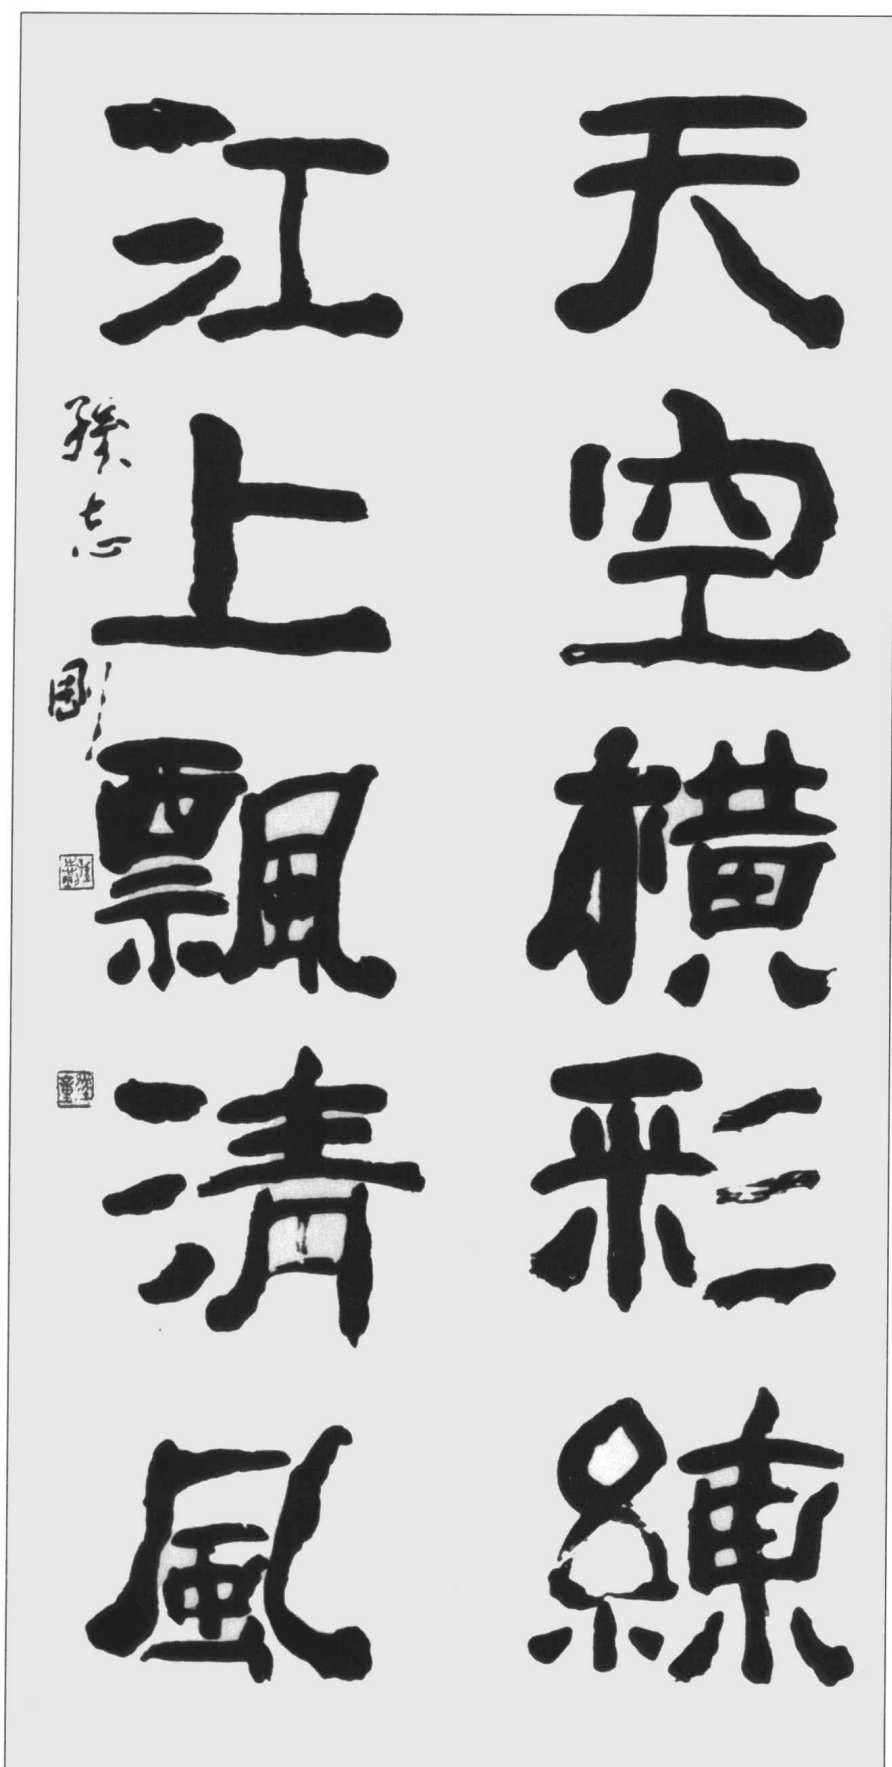 天空橫彩練
江上飄清風
孫志剛